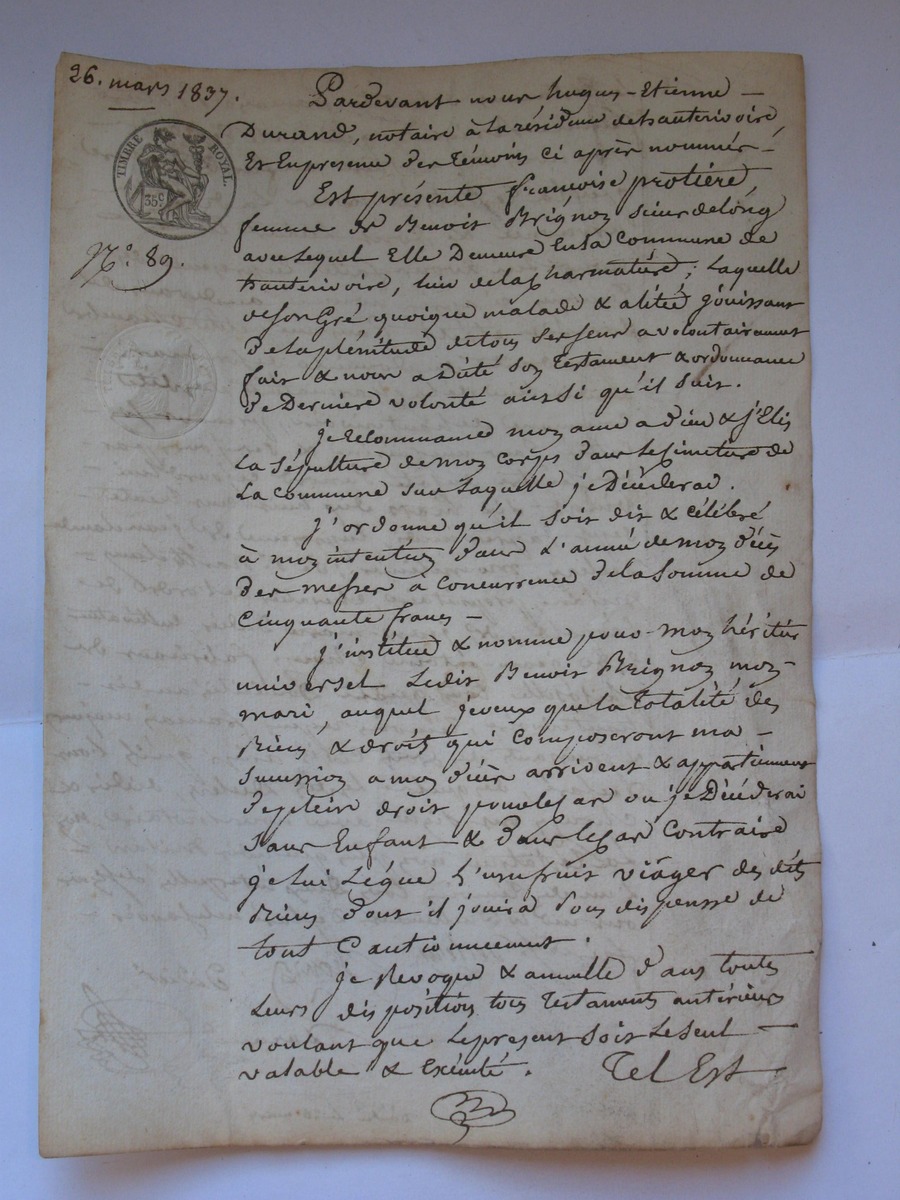 26. mars 1837.
TIMBRE ROYAL.
35c
No. 89.
Pardevant nous hugues-Etienne
Durand, notaire à la résidence de hauterivoire
Et En présence des témoins ci après nommés
Est présente françoise protière,
femme de Benoit Brignon
avec lequel Elle Demeure En la commune de
hauterivoire, lieu de la Charmatière; laquelle
de son Gré quoique malade & alitée jouissant
de la plénitude de tous ses sens a volontairement
fait & nous a Dicté son Testament & ordonnance
de Derniere volonté ainsi qu'il suit.
je recommande mon ame a dieu & j'Elis
La Sépulture de mon corps dans le cimetière de
La commune sur laquelle je Décéderai.
j'ordonne qu'il soit dit & célébré
à mon intention dans L'année de mon décès
des messes à concurrence de la somme de
cinquante francs
j'institue & nomme pour mon héritier
universel Ledit Benoit Brignon mon
mari, auquel je veux que la totalité des
Biens & droits qui composeront ma
succession a mon décès arrivent & appartiennent
de plein droit pour le cas ou je Décéderai
sans Enfant & dans le cas contraire
je lui Lègue L'usufruit viager des dits
Biens dont il jouira sous dispensse de
tout Cautionnement.
je Revoque & annulle dans toutes
Leurs dispositions tous Testaments antérieurs
voulant que Le présent soit Le seul
valable & exécuté. Tel Est